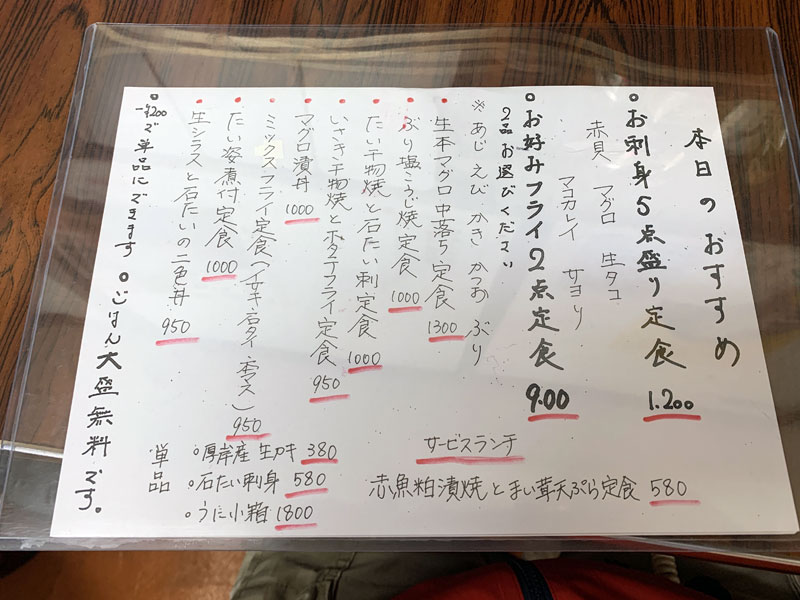 本日のおすすめ
○お刺身5点盛り定食 1.200
赤貝 マグロ 生タコ
マコカレイ サヨリ
○お好みフライ2点定食 9.00
2品お選びください
※あじ えび かき かつお ぶり
・生本マグロ中落ち定食 1300
・ぶり塩こうじ焼定食 1000
・たい干物焼と石たい刺定食 1000
・いさき干物焼とホタテフライ定食 950
・マグロ漬丼 1000
・ミックスフライ定食(イサキ・石タイ・本マス) 950
・たい姿煮付定食 1000
・生シラスと石たいの二色丼 950
○-¥200で単品にできます ○ごはん大盛無料です。
サービスランチ
赤魚粕漬焼とまい茸天ぷら定食 580
単品
○厚岸産生カキ 380
・石たい刺身 580
・うに小箱 1800